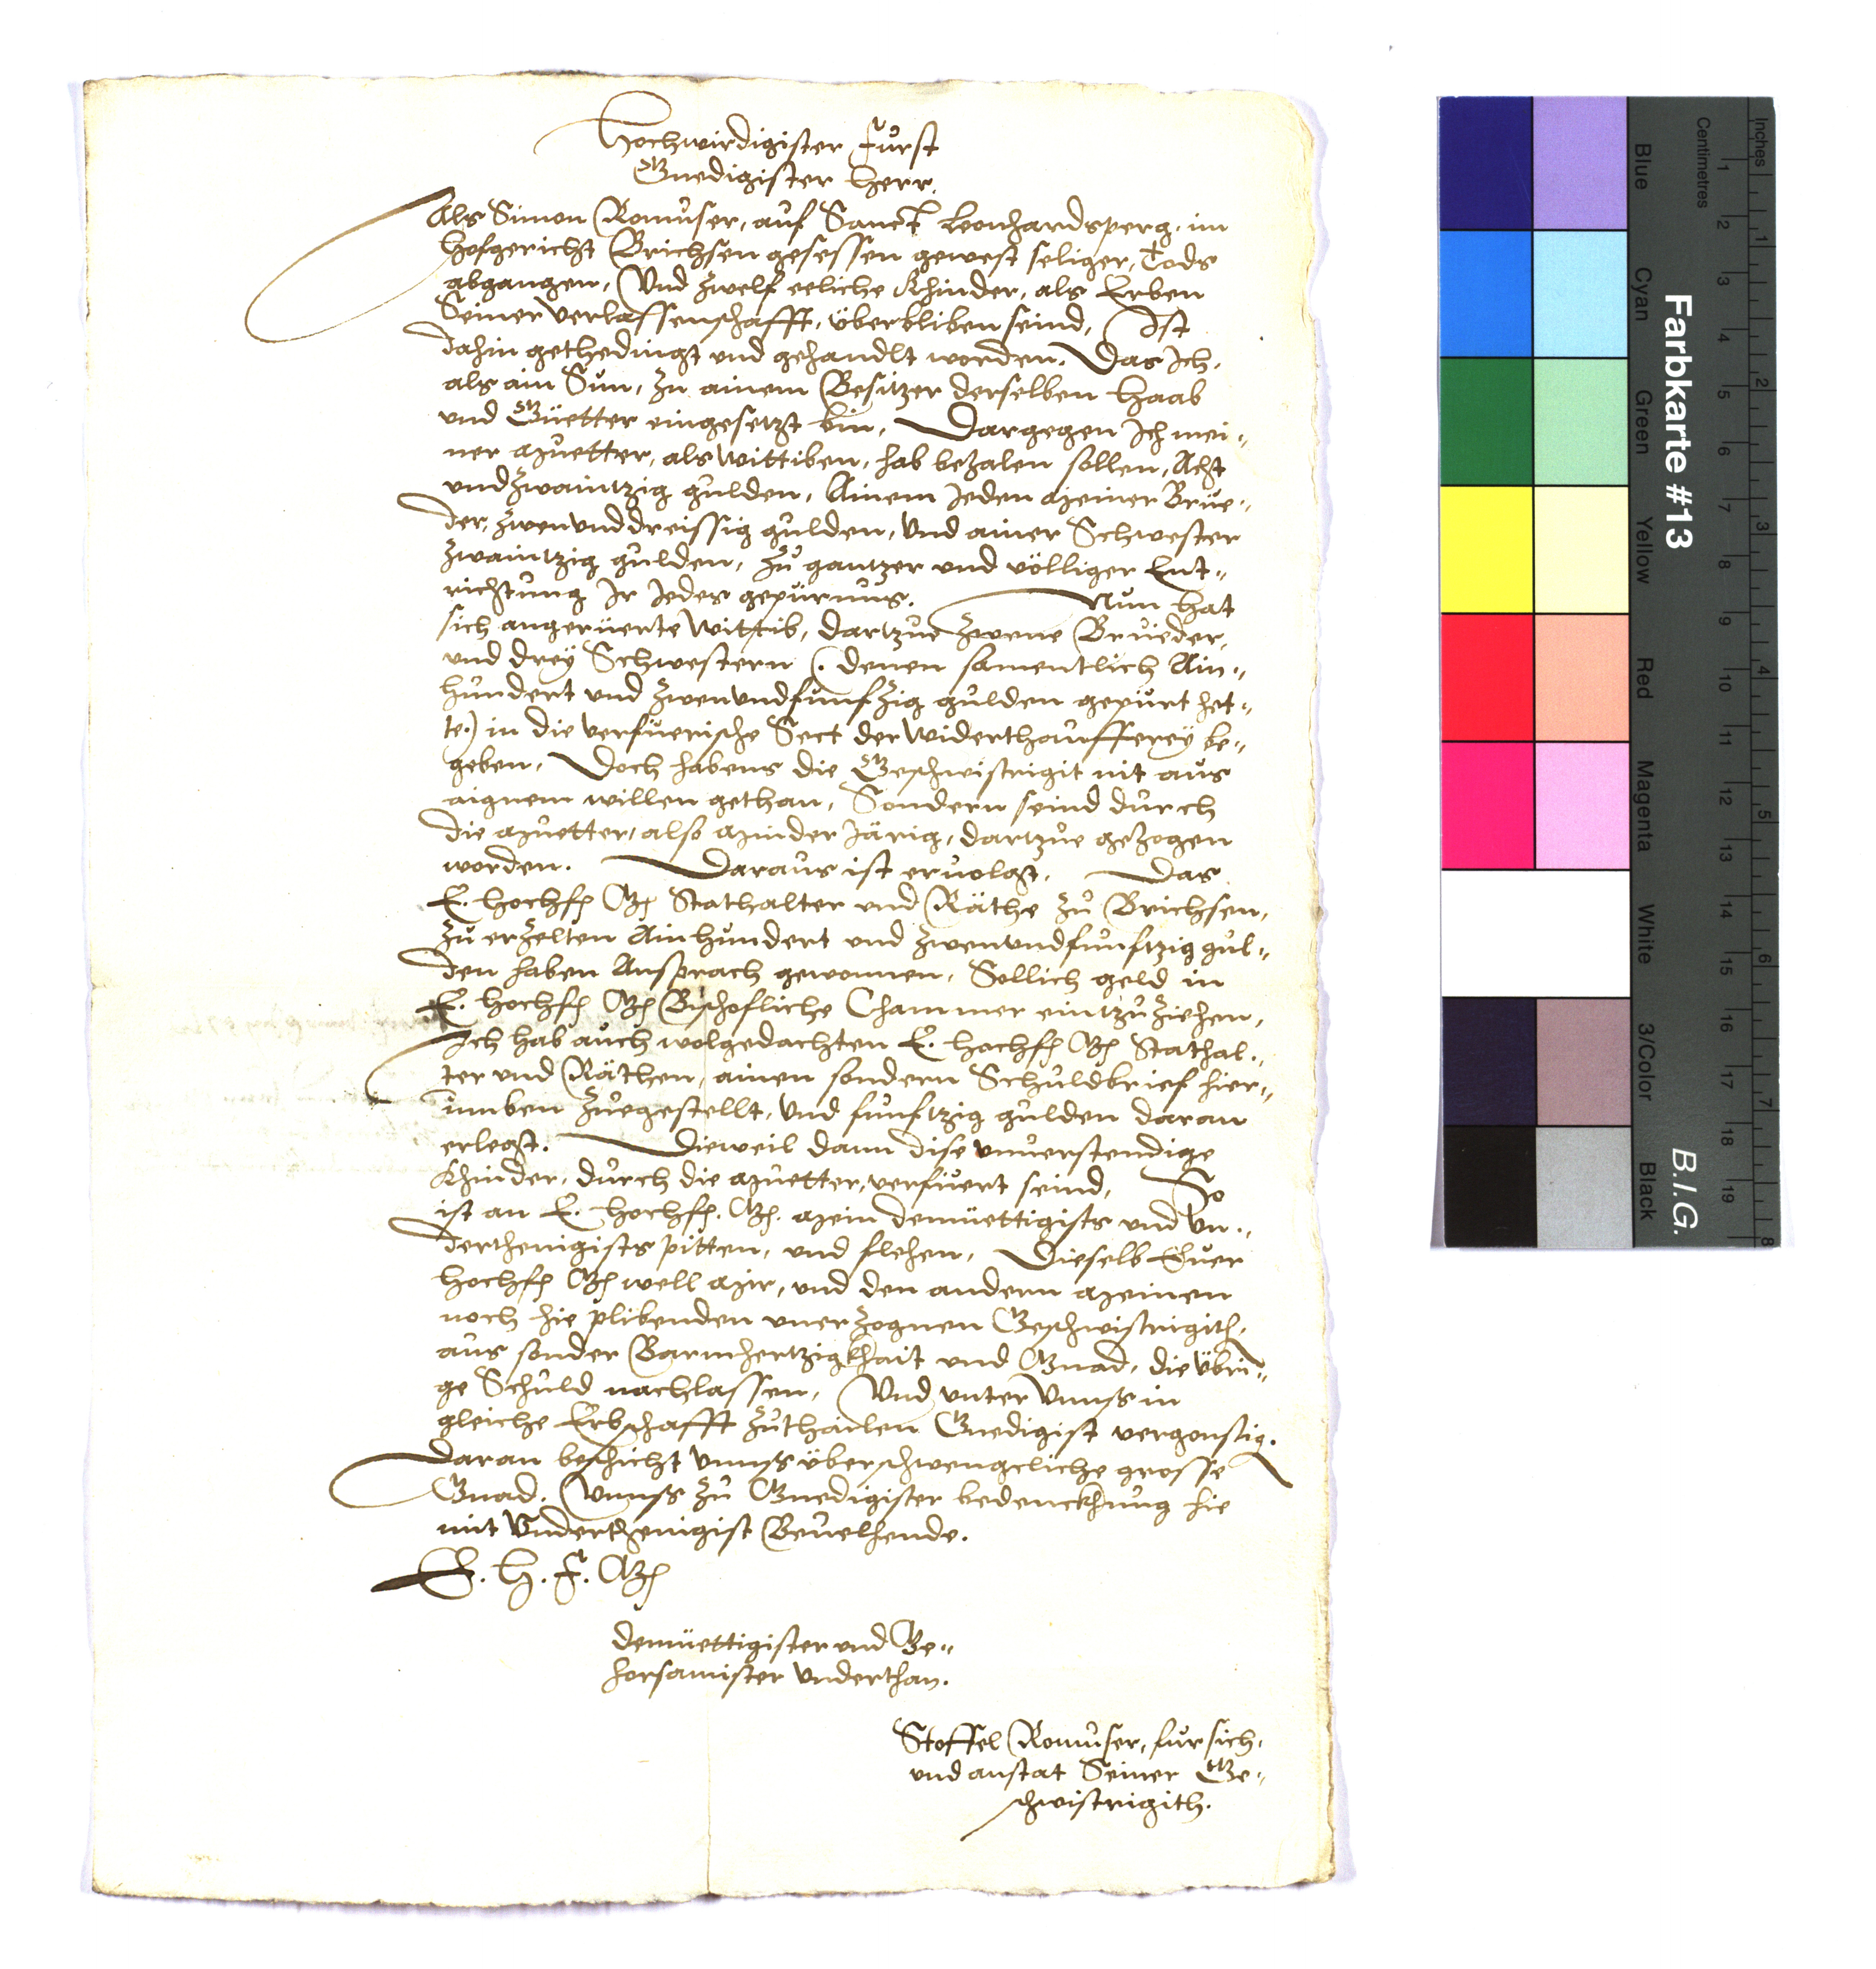 Hochwirdigister Fürst
Gnedigister Herr.
Als Simon Romuser, auf Sanct Leonhardsperg, im
Hofgericht Brichsen gesessen gewest seliger, Tods
abgangen, Und zwelf eeliche Khinder, als Erben
Seiner verlassenschafft, überbliben seind, Ist
dahin gethedingt und gehandlt worden. Das Ich,
als ain Sun, zu ainem Besitzer derselben Haab
und Güetter eingesetzt bin, Dargegen Ich mei„
ner Muetter, als Wittiben, hab bezalen sollen, Acht
undzwaintzig gulden, Ainem Jeden Meiner Brue„
der, zwenunddreissig gulden, Und ainer Schwester
zwaintzig gulden, zu gantzer und völliger Ent„
richtung Ir Jedes gepürnus. Nun hat
sich angerüerte Wittib, dartzue zwene Brueder,
und dreÿ Schwestern (. denen samentlich Ain„
hundert und zwenundfunfzig gulden gepürt het„
te.) in die verfüerische Sect der Widerthauffereÿ be„
geben, Doch habens die Geschwistrigit nit aus
aignem willen gethan, Sondern seind durch
die Muetter, also Minder Järig, dartzue gezogen
worden. Daraus ist ervolgt, Das
E. Hochf. G. Stathalter und Räthe zu Brichsen,
zu erzelten Ainhundert und zwenundfunftzig gul„
den haben Ansprach gewonnen, Sollich geld in
E. Hochf. G. Bischofliche Chammer eintzuziehen,
Ich hab auch wolgedachten E. Hochf. G. Stathal„
ter und Räthen, ainen sondern Schuldbrief hier„
umben zuegestellt, Und funftzig gulden daran
erlegt. Dieweil dann dise unverstendige
Khinder, durch die Muetter, verfüert seind, So
ist an E. Hochf. G. Mein demüettigists und Un„
derthenigists pitten, und flehen, Dieselb Euer
Hochf. G. well Mir, und den andern Meinen
noch hie plibenden unerzognen Geschwistrigith,
aus sonder Barmhertzigkhait und Gnad, die übri„
ge Schuld nachlassen, Und unter Unnss in
gleiche Erbschafft zuthailen Gnedigist vergonstig.
Daran beschicht Unnss überschwengcliche grosse
Gnad. Unnss zu Gnedigister bedenckhung hie
mit Underthenigist Bevelhende.
E. H. F. G.
Demüettigister und Ge„
horsamister Underthan.
Stoffel Romuser, für sich,
und anstat Seiner Ge„
schwistrigith.
Farbkarte #13
B.I.G.
Inches
1
2
3
4
5
6
7
8
Centimetres
1
2
3
4
5
6
7
8
9
10
11
12
13
14
15
16
17
18
19
Blue
Cyan
Green
Yellow
Red
Magenta
White
3/Color
Black